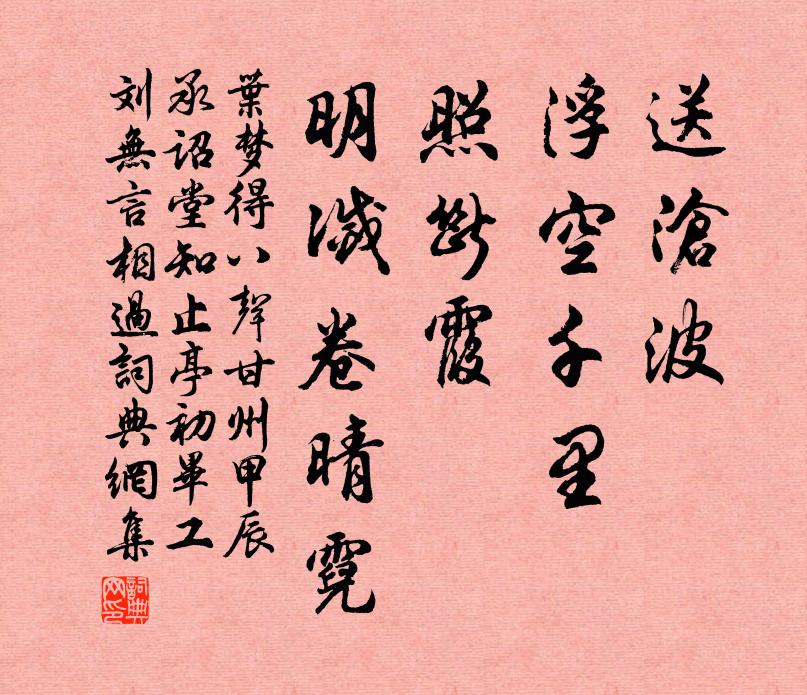 送滄波
浮空千里
照斷霞
明滅卷晴霓
葉梦得八聲甘州甲辰
承詔堂知止亭初畢工
刘無言相過詞典網集
詞典網印